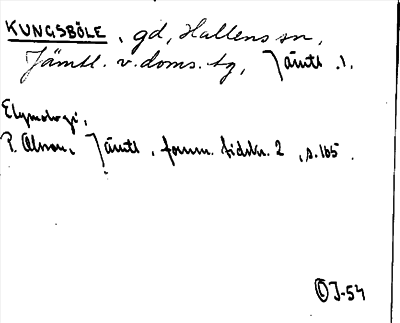 KUNGSBÖLE, gd, Hallens sn,
Jämtl. v. doms. tg, Jämtl .l.
Etymologi,
P. Olsson, Jämtl. fornm. tidskr. 2, s. 165.
OJ-54